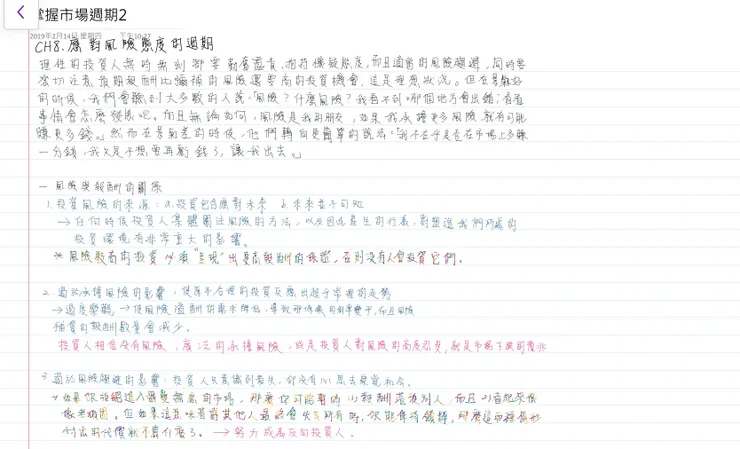 掌握市場週期2
2019年2月14日 星期四 下午10:27
CH8. 應對風險態度的週期
理性的投資人無時無刻都要勤奮盡責，抱持懷疑態度，而且適當的風險趨避，同時要
密切注意預期報酬比補償的風險還要高的投資機會，這是理想狀況。但在景氣好
的時候，我們會聽到大多數的人說「風險？什麼風險？我看不到哪個地方會出錯；看看
事情會怎麼發展吧。而且無論如何，風險是我的朋友，如果我承擔更多風險，就有可能
賺更多錢。」然而在景氣差的時候，他們轉向更簡單的說法：「我不在乎是否在市場上多賺
一分錢，我只是不想要再虧錢了，讓我出去。」
一 風險與報酬的關係
1. 投資風險的來源：a. 投資包含應對未來 b. 未來並不可知
→ 任何時候投資人集體關注風險的方法，以及因此產生的行為，對塑造我們所處的
投資環境有非常重大的影響。
* 風險較高的投資必須"呈現"出更高報酬的保證，否則沒有人會投資它們。
2. 過於承擔風險的影響：使原本合理的投資反應出超乎常理的走勢
→ 過度樂觀 → 使風險溢酬的需求降低，導致那條線的斜率變平，而且風險
補償的報酬數量會減少。
投資人相信沒有風險，廣泛的承擔風險，或是投資人對風險的高度忍受，就是市場下跌的徵兆
3. 過於風險趨避的影響：投資人只意識到損失，卻沒有
* 如果你拒絕進入最受 的市場，那麼你可能暫時 報酬落後別人，而且 看起來很
像老頑固。但如果這意味著當其他人最終會失去所有時，你能保持錢轉，那麼這
付出的代價就不算什麼了。→ 努力成為反向投資人。